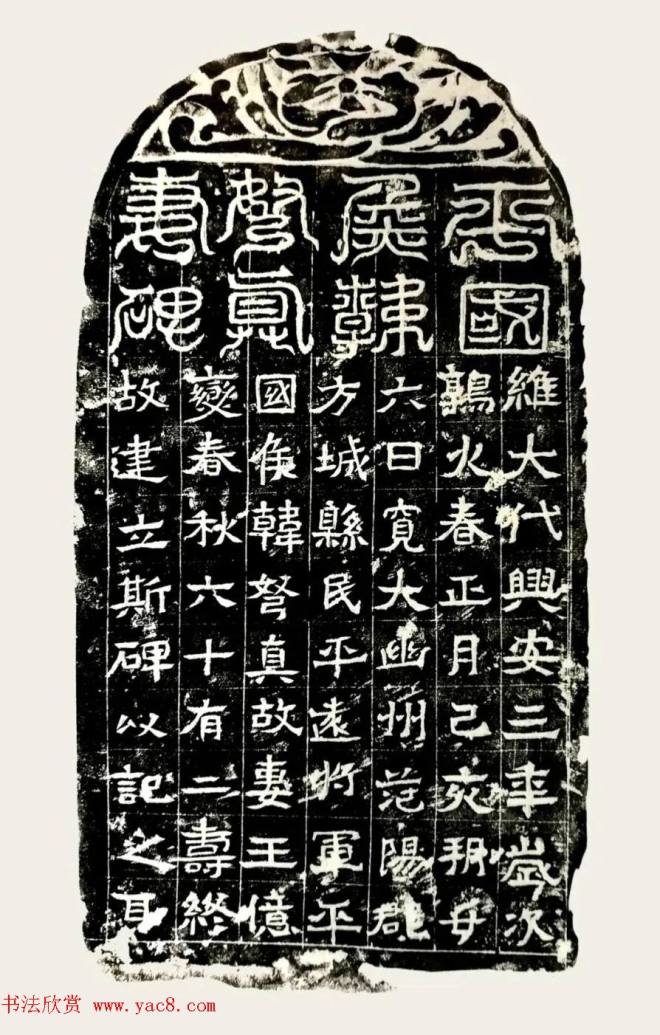 平國
侯韓
弩真
妻碑
維大代興安三年歲次
鶉火春正月己亥朔廿
六日寛大幽州范陽郡
方城縣民平遠將軍平
國侯韓弩真故妻王億
變春秋六十有二壽終
故建立斯碑以記之耳
书法欣赏 www.yac8.com